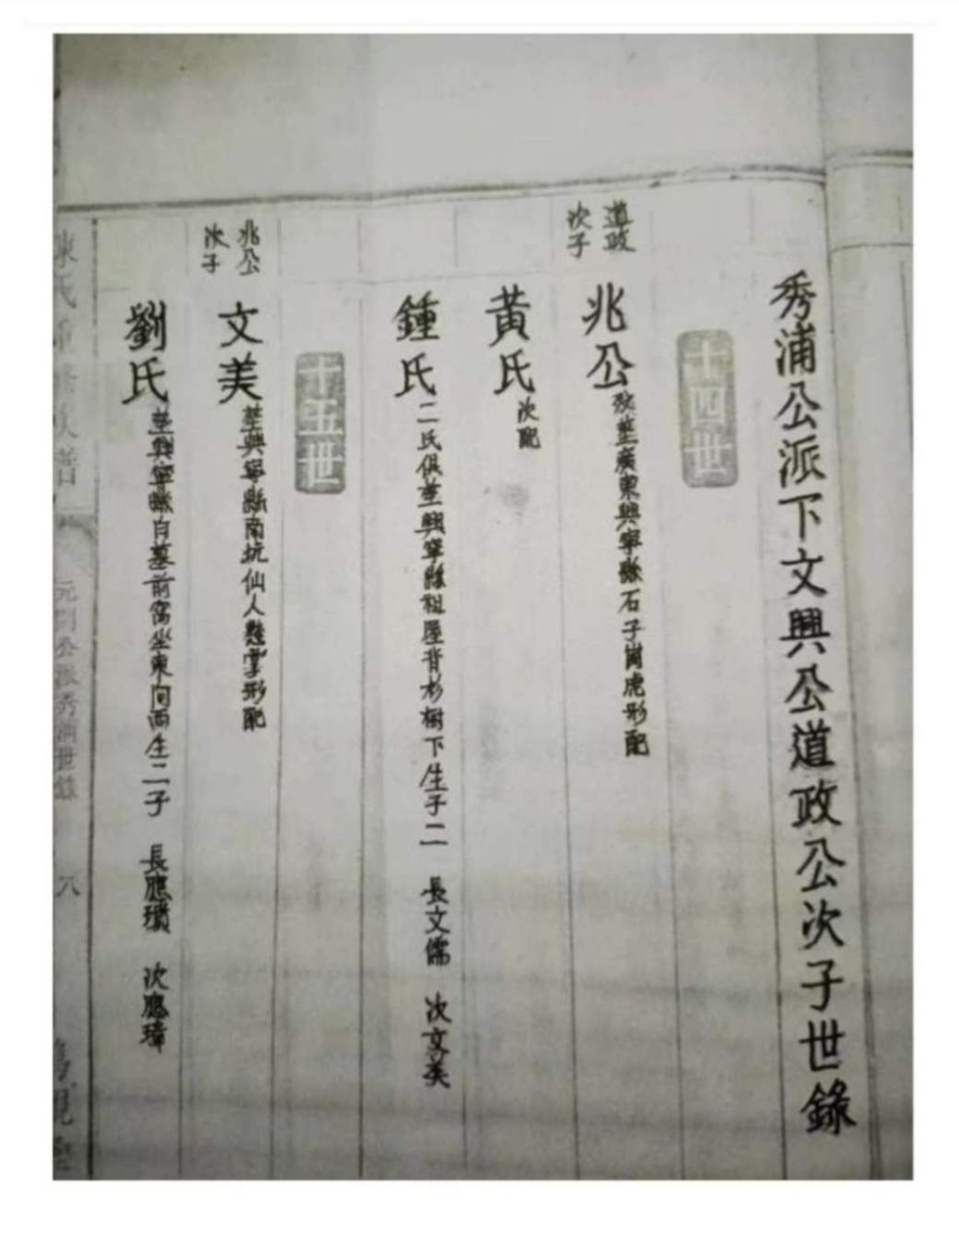 秀浦公派下文興公道政公次子世錄
十四世
道政
次子
兆公 歿塟廣東興寧縣石子崗虎形配
黃氏 次配
鍾氏 二氏俱塟興寧縣祖屋背杉樹下生子二 長文儒 次文美
十五世
兆公
次子
文美 塟興寧縣南坑仙人懸掌形配
劉氏 塟興寧縣白墓前窩坐東向西生二子 長應瓚 次應璋
陳氏重修族譜
秀浦世錄
六